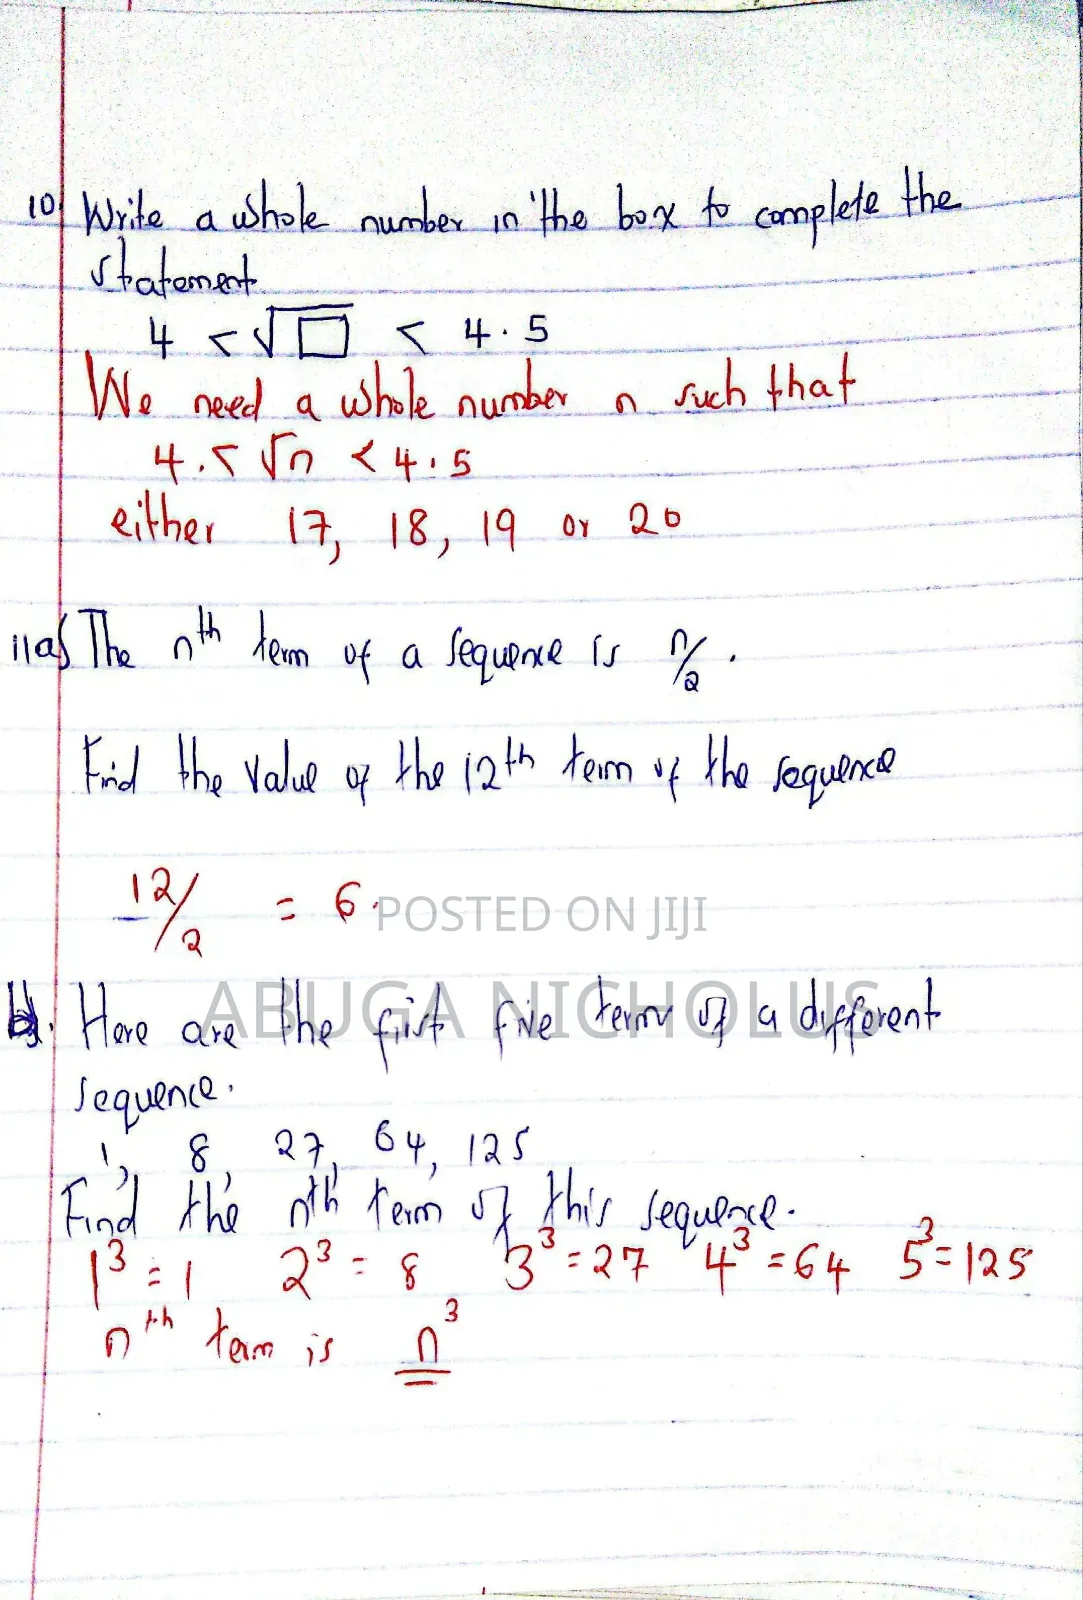 10) Write a whole number in the box to complete the
statement
4 < √□ < 4.5
We need a whole number n such that
4.< √n < 4.5
either 17, 18, 19 or 20
11a) The nth term of a sequence is n/2.
Find the value of the 12th term of the sequence
12/2 = 6.
POSTED ON JIJI
ABUGA NICHOLUS
b). Here are the first five terms of a different
sequence.
1, 8, 27, 64, 125
Find the nth term of this sequence.
1³ = 1 2³ = 8 3³ = 27 4³ = 64 5³ = 125
nth term is n³